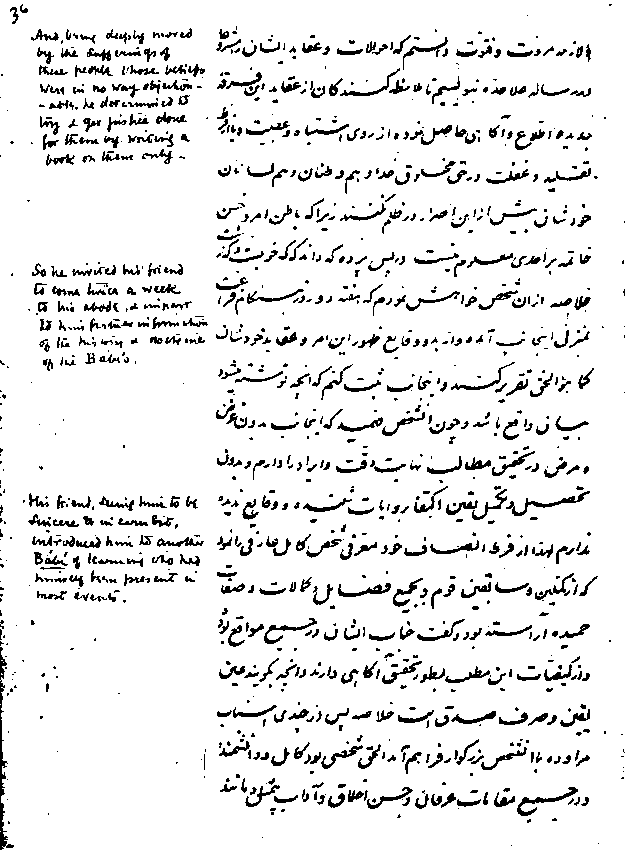 36
And, being deeply moved
by the sufferings of
these people whose beliefs
were in no way objection-
-able, he determined to
try & get justice done
for them by writing a
book on them only.
So he invited his friend
to come twice a week
to his abode, & impart
to him further information
of the history & doctrine
of the Bábís.
His friend, seeing him to be
sincere & in earnest,
introduced him to another
Bábí of learning who had
himself been present in
most events.
لازمه مروت و فتوت دانستم که احوالات و عقاید ایشان
در رساله علاحده بنویسم تا ملاحظه کنندکان از عقاید این فرقه
جدیده اطلاع و آکاهی حاصل نموده از روی اشتباه و
تقلید و غفلت در حق مخلوق خدا و هم وطنان و هم لسانان
خودشان بیش از این اصرار در ظلم نکنند زیرا که باطن امر و حسن
خاتمه بر احدی معلوم نیست در پس پرده که داند که که خوبست و که زشت
خلاصه از ان شخص خواهش نمودم که هفته دو روز هنکام فراغت
بمنزل اینجانب آمده و از بدو وقایع ظهور این امر و عقاید خودشان
کما هو الحق تقریر کنند و اینجانب ثبت کنم که آنچه نوشته میشود
بیان واقع باشد و چون آنشخص فهمید که اینجانب بدون غرض
و مرض در تحقیق مطالب نهایت دقت و ایراد را دارم و بدون
تحصیل و تکمیل یقین اکتفا بروایات شنیده و وقایع ندیده
ندارم لهذا از فرط انصاف خود معرفی شخص کامل عارفی را نمود
که از مکملین و سابقین قوم و بجمیع فضایل و کمالات و صفات
حمیده آراسته بود و کفت جناب ایشان در جمیع مواقع بوده
و از کیفیات این مطلب بطور تحقیق آکاهی دارند و آنچه بکویند عین
یقین و صرف صدق است خلاصه پس از چندی اسباب
مراوده با آنشخص بزرکوار فراهم آمد الحق شخصی بود کامل و دانشمند
و در جمیع مقامات عرفان و حسن اخلاق و آداب بیمثل و مانند